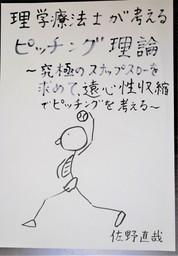 理学療法士が考える
ピッチング理論
〜究極のスナップスローを
求めて、遠心性収縮
でピッチングを考える〜
佐野直哉